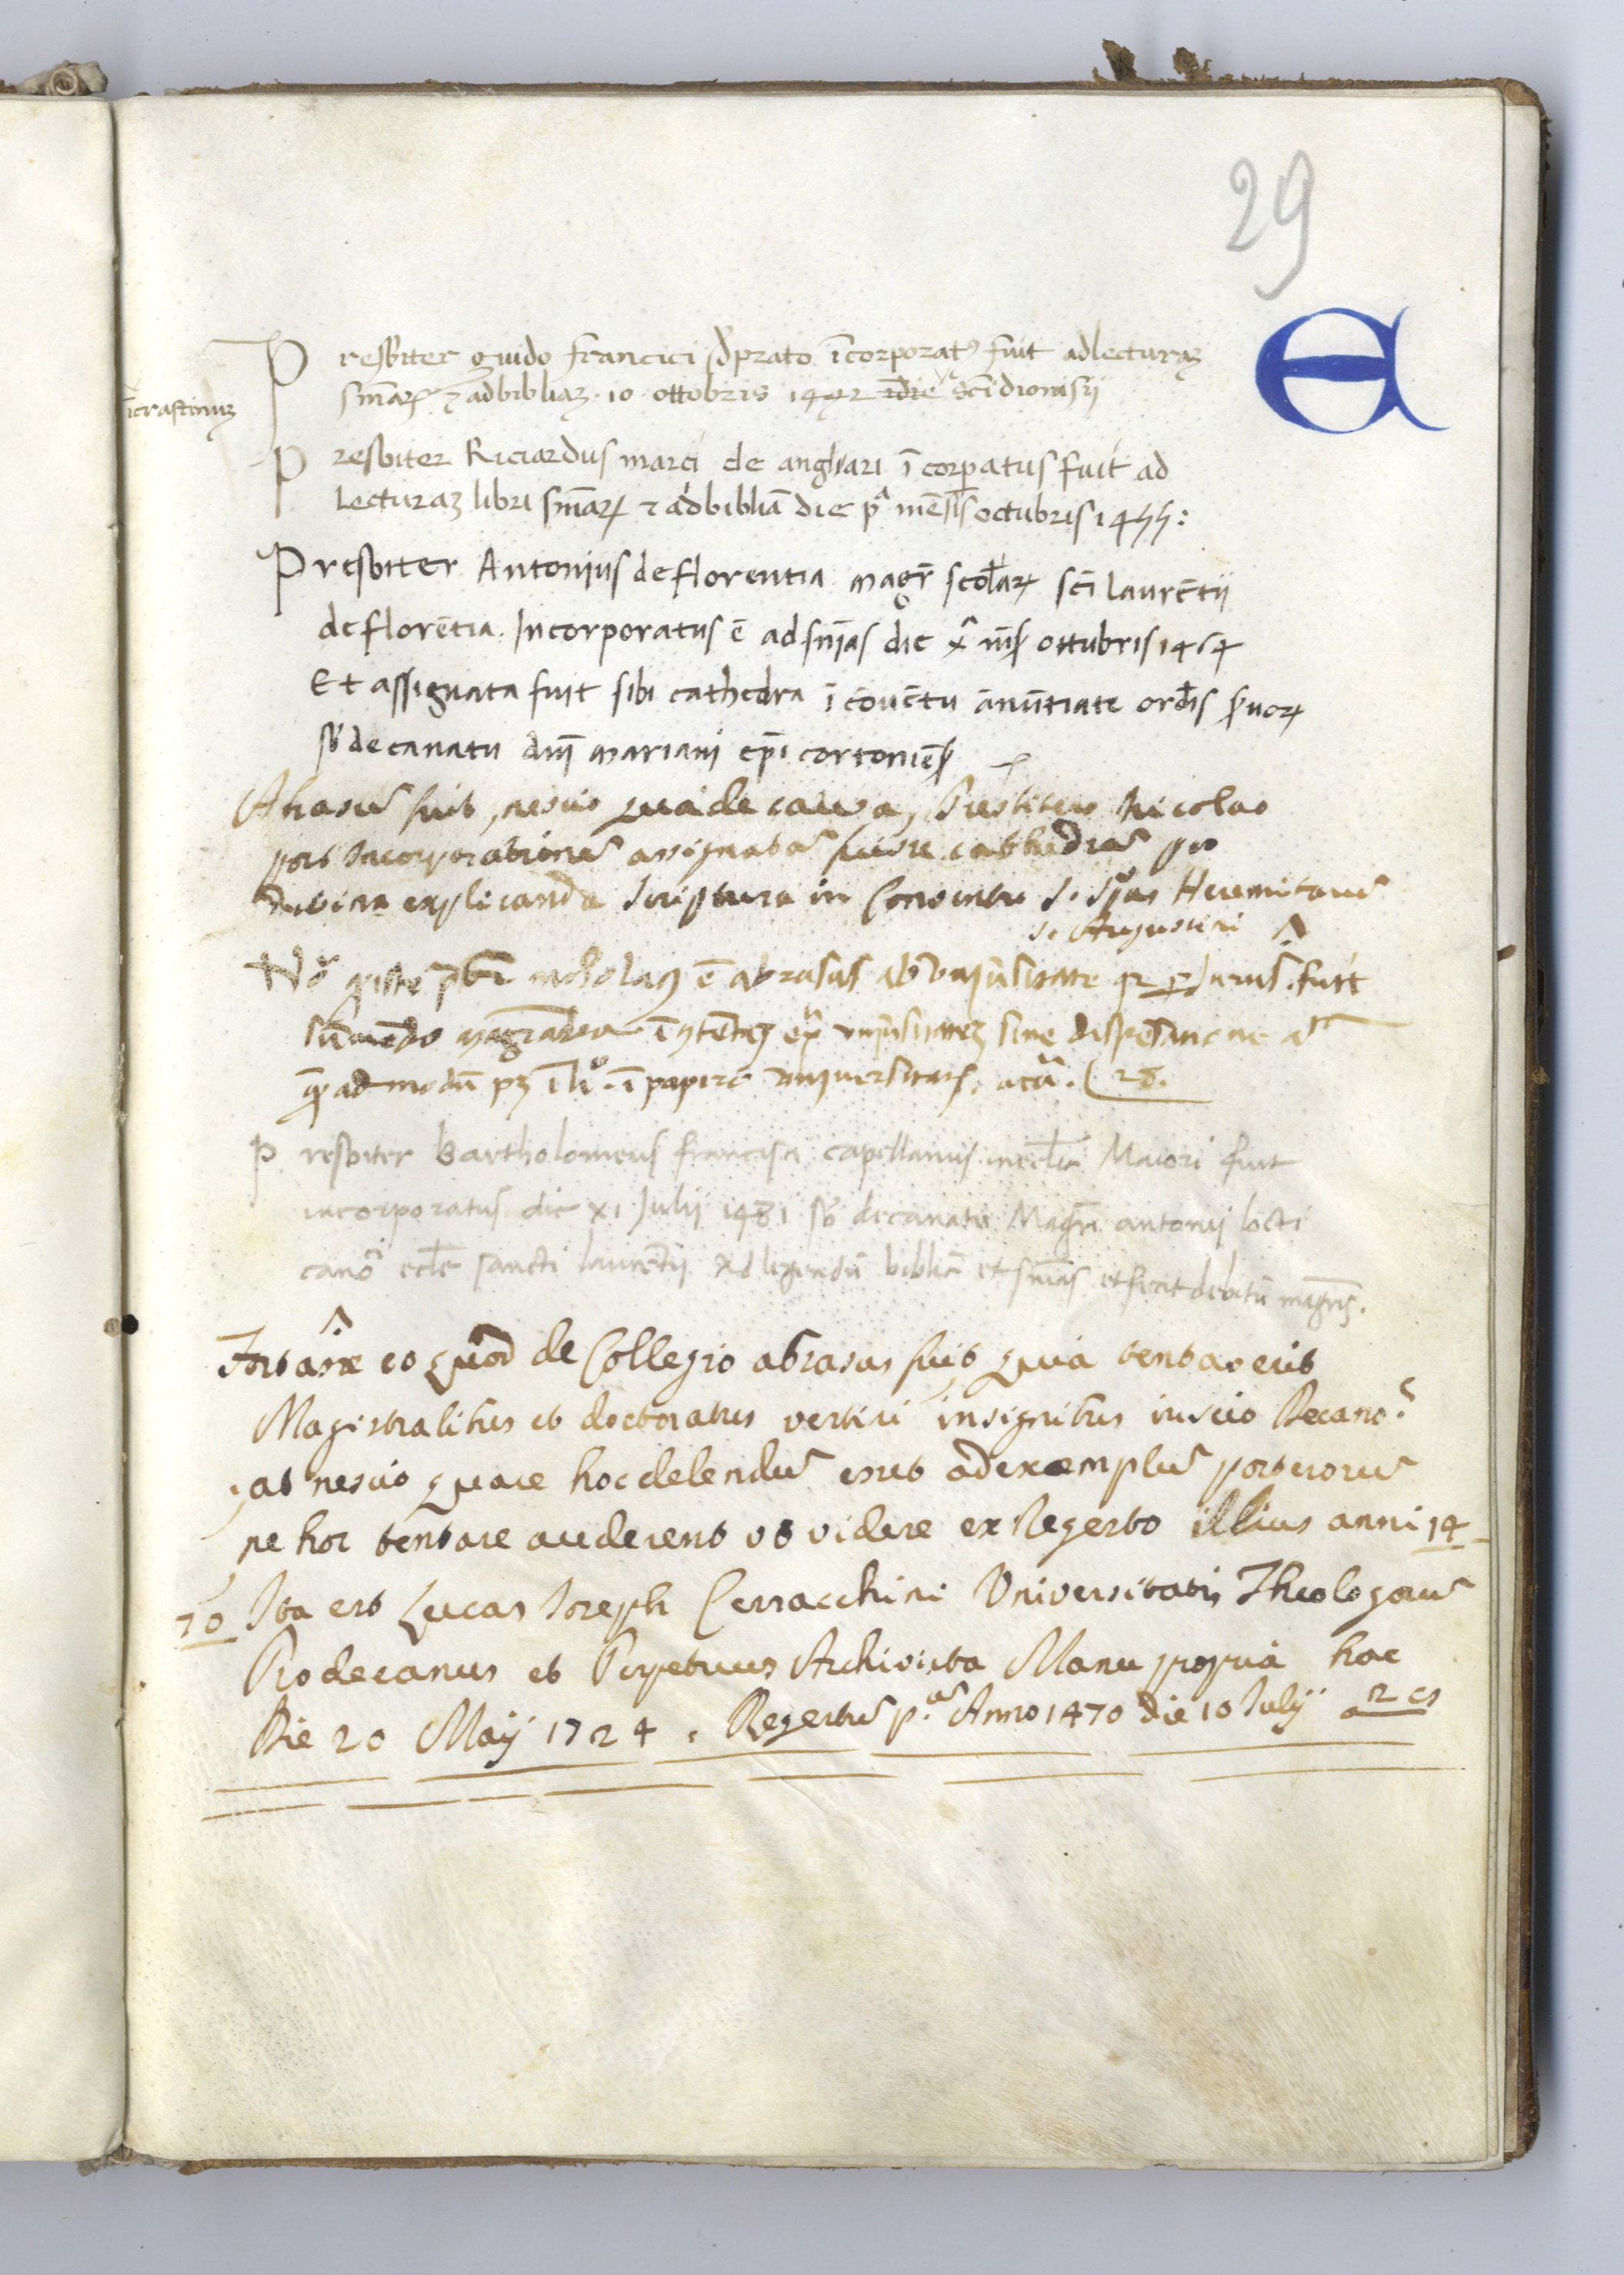 29
E
Presbiter guido francici d'prato ĩcorporat⁹ fuit ad lecturaꝫ
sm̃aꝝ ⁊ ad bibliaꝫ · 10 · ottobris 1442 idie scĩ dionisij
ĩcrastinuꝫ
Presbiter Riciardus marci de anghiari ĩ corpatus fuit ad
lecturaꝫ libri sm̃aꝝ ⁊ ad bibliã die pª mẽsis octubris 1455:
Presbiter Antonius de florentia magr̃ scolaꝝ scĩ laurẽtij
de florẽtia. Incorporatus ẽ ad sñias die x̃ ottubris 1464
Et assignata fuit sibi cathedra ĩ cõuẽtu ãnũtiate ordĩs ꝑuoꝝ
sb̃ decanatu dnĩ mariani ep̃i cortoniẽs
Abrasũ fuit, nescio qua de causa, Presbitero Nicolao
post Incorporationẽ assignatã fuisse cathedrã pro
divina explicanda scriptura in Conventu S. Sp̃us Heremitarũ
S. Augustini
Nõ iste pbr̃ nicholaꝰ ẽ abrasus ab vniũsitate fuit
sine dispẽsatione
ad modũ pꝫ ĩ lº. ĩ papiro vniversitatis, 28.
Presbiter Bartholomeus francisci capellanus in ecl̃ia Maiori fuit
incorporatus die xi Julij 1481 sb̃ decanatu Magr̃i antonij locti
canoͨ ecl̃e sancti laurẽtij Ad legendũ bibliã et sñias et fecit debitũ magr̃is.
Fortasse eo quod de Collegio abrasus fuit, quia tentaverit
Magistralibus et doctoratus vestiri insignibus inscio Decano?
, at nescio quare hoc delendũ esset ad exemplũ posterorũ
ne hoc tentare auderent ut videre ex Regesto illius anni 14
70 Ita est Lucas Joseph Cerracchini Universitatis Theologorũ
Prodecanus et Perpetuus Archivista Manu propria hac
Die 20 Maij 1724. Regestũ p.ũ Anno 1470 die 10 Julij a 2 cs